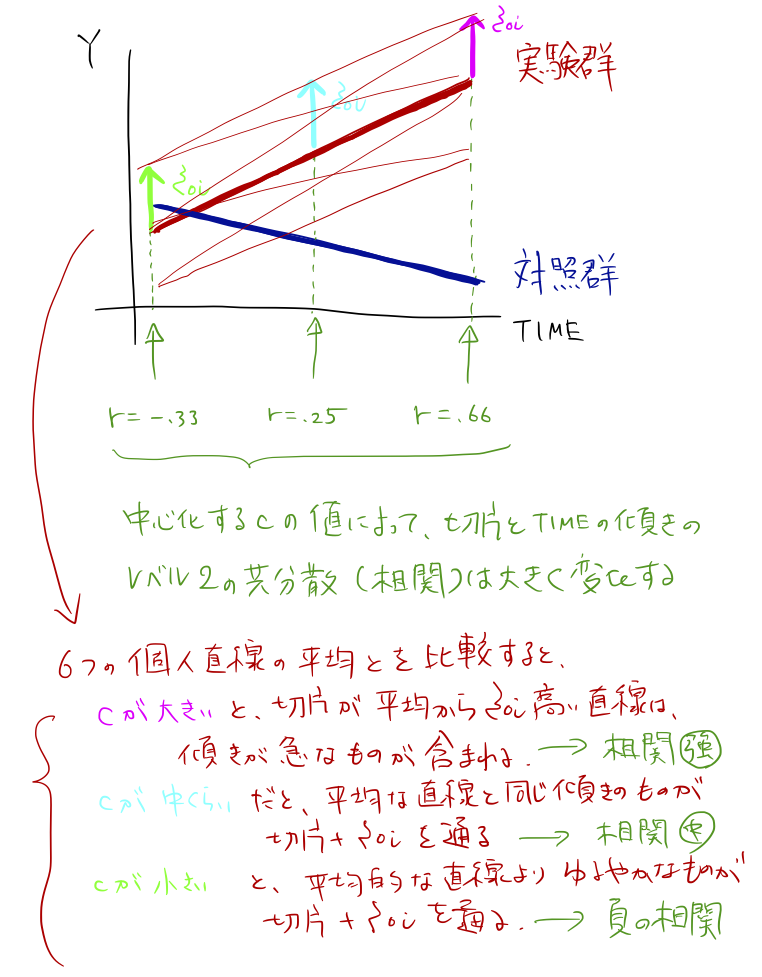 Y
ξoi
実験群
ξoi
ξoi
対照群
TIME
r=-.33 r=.25 r=.66
中心化するcの値によって、切片とTIMEの傾きの
レベル2の共分散(相関)は大きく変化する
6つの個人直線の平均とを比較すると、
cが大きいと、切片が平均からξoi高い直線は、
傾きが急なものが含まれる. → 相関強
cが中くらいだと、平均な直線と同じ傾きのものが
切片+ξoiを通る → 相関中
cが小さいと、平均的な直線よりゆるやかなものが
切片+ξoiを通る. → 負の相関